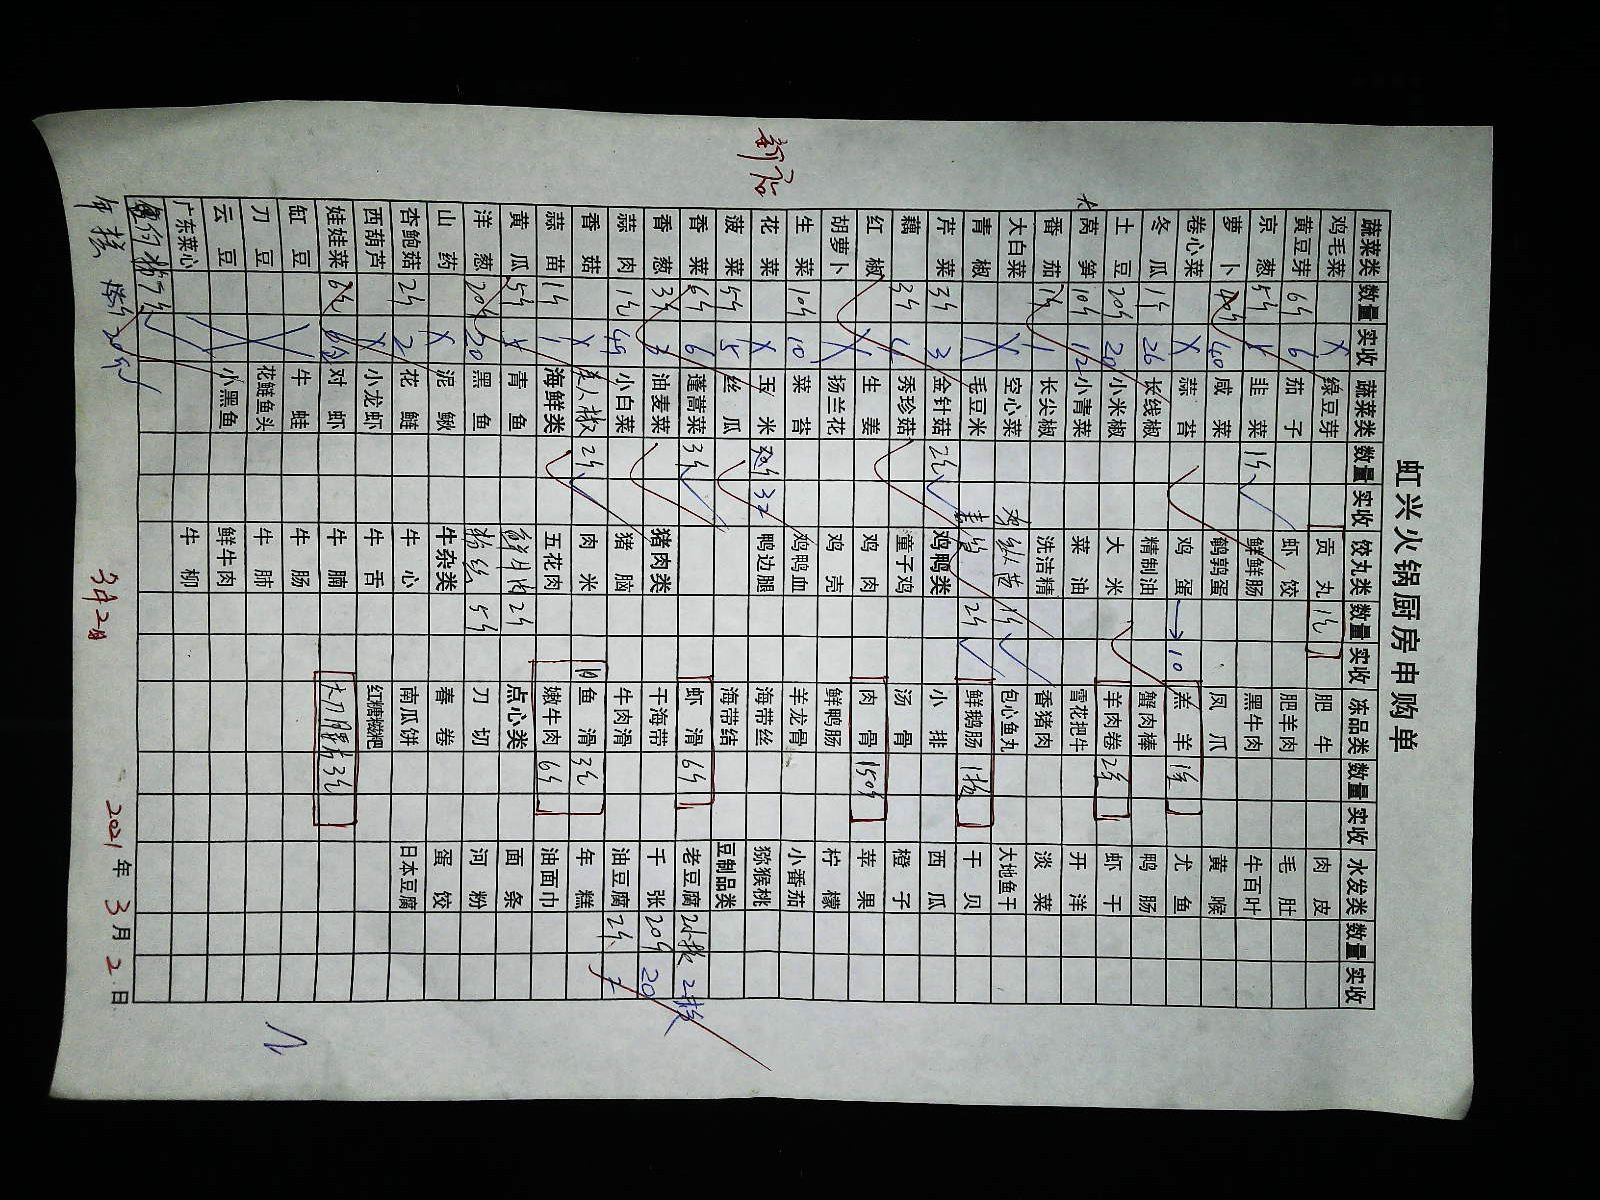 虹兴火锅厨房申购单
新店
蔬菜类 数量 实收 蔬菜类 数量 实收 饺丸类 数量 实收 冻品类 数量 实收 水发类 数量 实收
鸡毛菜 X 绿豆芽 贡丸 1包 肥牛 肉皮
黄豆芽 6斤 6 茄子 虾饺 肥羊肉 毛肚
京葱 5斤 5 韭菜 1斤 鲜鲜肠 黑牛肉 牛百叶
萝卜 40斤 40 咸菜 鹌鹑蛋 凤爪 黄喉
卷心菜 X 蒜苔 鸡蛋 →10 羔羊 1件 尤鱼
冬瓜 1个 26 长线椒 精制油 蟹肉棒 鸭肠
土豆 20斤 20 小米椒 大米 羊肉卷 2件 虾干
莴笋 10斤 12 小青菜 菜油 雪花把牛 开洋
番茄 1 长尖椒 洗洁精 香猪肉 淡菜
大白菜 X 空心菜 鸡纵菌 1斤 包心鱼丸 大地鱼干
青椒 X 毛豆米 2斤 鲜鹅肠 干贝
芹菜 3斤 3 金针菇 2包 鸡鸭类 小排 西瓜
藕 3斤 4 秀珍菇 童子鸡 汤骨 橙子
红椒 X 生姜 鸡肉 肉骨 150斤 苹果
胡萝卜 X 扬兰花 鸡壳 鲜鸭肠 柠檬
生菜 10斤 10 菜苔 鸡鸭血 羊龙骨 小番茄
花菜 X 玉米 32 鸭边腿 海带丝 猕猴桃
菠菜 5斤 5 丝瓜 海带结 豆制品类
香菜 6斤 6 蓬蒿菜 3斤 虾滑 6斤 老豆腐 2板
香葱 3斤 3 油麦菜 猪肉类 干海带 千张 20斤 20
蒜肉 小白菜 猪脑 牛肉滑 油豆腐 2斤 2
香菇 X 美人椒 2斤 肉米 鱼滑 3包 年糕
蒜苗 1斤 1 海鲜类 五花肉 嫩牛肉 6斤 油面巾
黄瓜 5斤 5 青鱼 鲜牛肉 2斤 点心类 面条
洋葱 20斤 20 黑鱼 粉丝 5斤 刀切 河粉
山药 X 泥鳅 牛杂类 春卷 蛋饺
杏鲍菇 2斤 2 花鲢 牛心 南瓜饼 日本豆腐
西葫芦 X 小龙虾 牛舌 红糖糍粑
娃娃菜 6包 对虾 牛腩 大刀腰片 3包
缸豆 牛蛙 牛肠
刀豆 花鲢鱼头 牛肺
云豆 小黑鱼 鲜牛肉
广东菜心 牛柳
年糕 20斤
3月2日
2021年3月2日